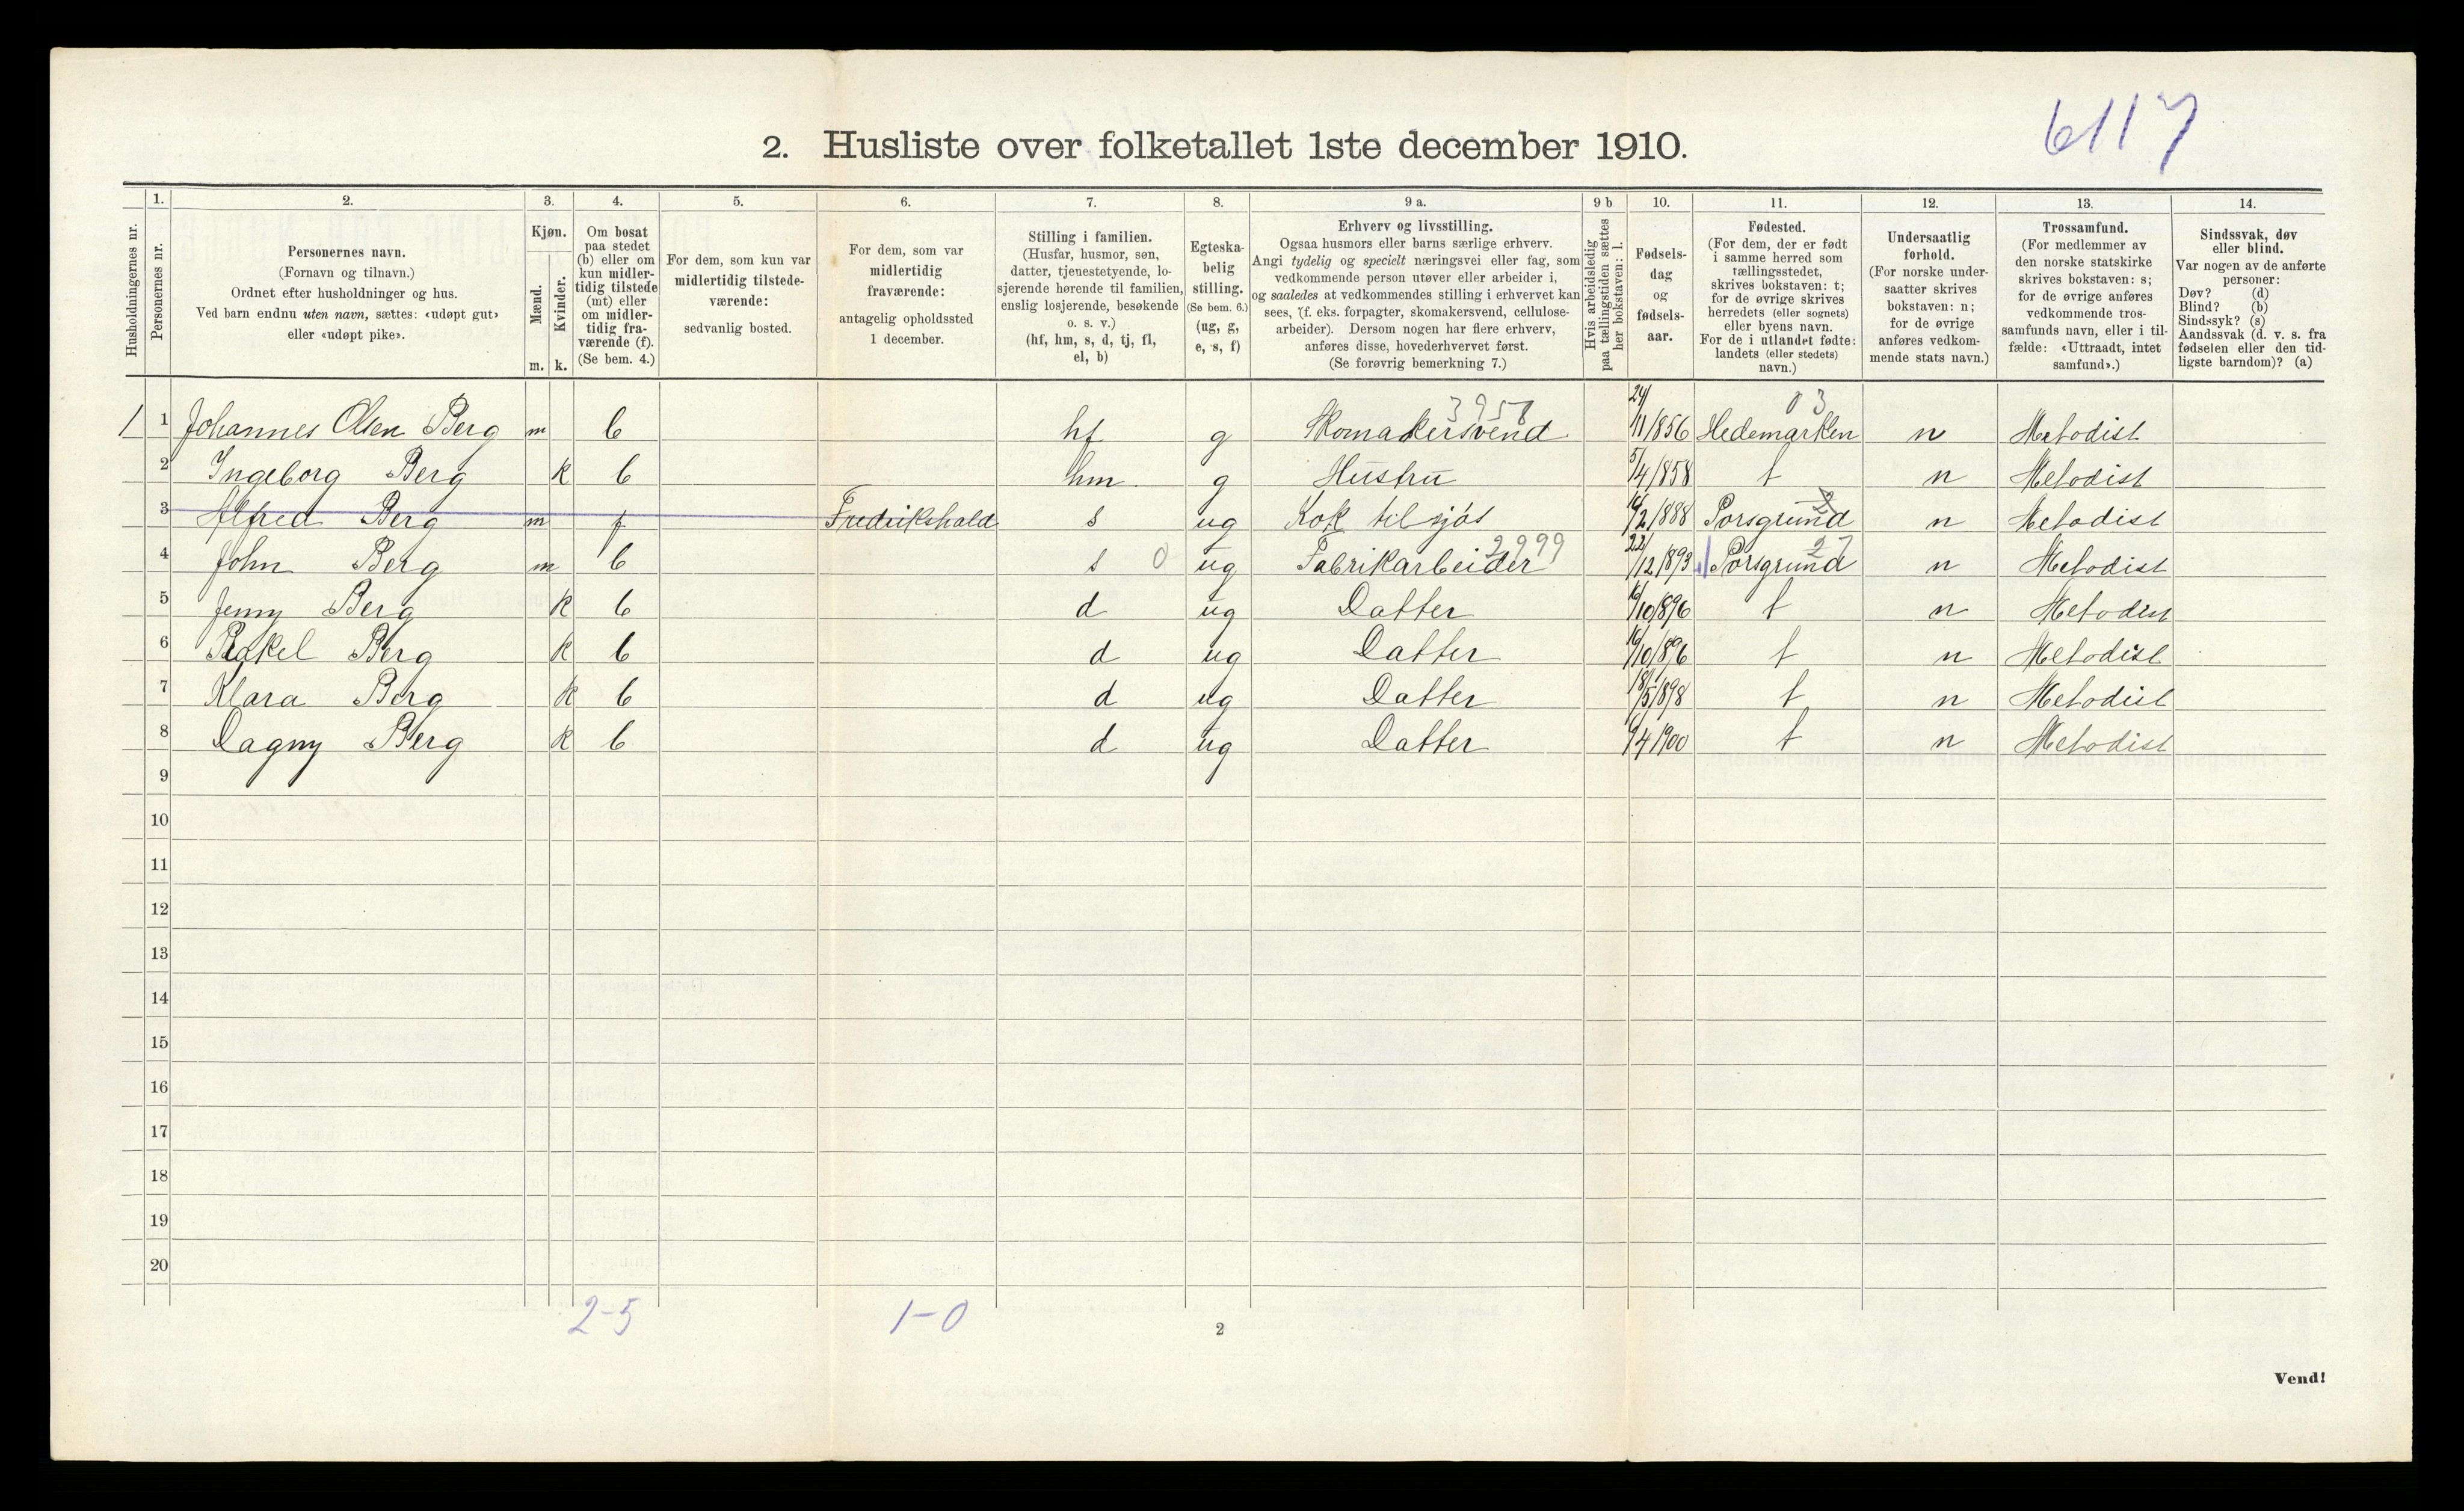 6117
2. Husliste over folketallet 1ste december 1910.
Husholdningernes nr.
1.
Personernes nr.
2.
Personernes navn.
(Fornavn og tilnavn.)
Ordnet efter husholdninger og hus.
Ved barn endnu uten navn, sættes: «udøpt gut»
eller «udøpt pike».
3.
Kjøn.
Mænd.
Kvinder.
m. k.
4.
Om bosat
paa stedet
(b) eller om
kun midler-
tidig tilstede
(mt) eller
om midler-
tidig fra-
værende (f).
(Se bem. 4.)
5.
For dem, som kun var
midlertidig tilstede-
værende:
sedvanlig bosted.
6.
For dem, som var
midlertidig
fraværende:
antagelig opholdssted
1 december.
7.
Stilling i familien.
(Husfar, husmor, søn,
datter, tjenestetyende, lo-
sjerende hørende til familien,
enslig losjerende, besøkende
o. s. v.)
(hf, hm, s, d, tj, fl,
el, b)
8.
Egteska-
belig
stilling.
(Se bem. 6.)
(ug, g,
e, s, f)
9 a.
Erhverv og livsstilling.
Ogsaa husmors eller barns særlige erhverv.
Angi tydelig og specielt næringsvei eller fag, som
vedkommende person utøver eller arbeider i,
og saaledes at vedkommendes stilling i erhvervet kan
sees, (f. eks. forpagter, skomakersvend, cellulose-
arbeider). Dersom nogen har flere erhverv,
anføres disse, hovederhvervet først.
(Se forøvrig bemerkning 7.)
9 b
Hvis arbeidsledig
paa tællingstiden sættes
her bokstaven: l.
10.
Fødsels-
dag
og
fødsels-
aar.
11.
Fødested.
(For dem, der er født
i samme herred som
tællingsstedet,
skrives bokstaven: t;
for de øvrige skrives
herredets (eller sognets)
eller byens navn.
For de i utlandet fødte:
landets (eller stedets)
navn.)
12.
Undersaatlig
forhold.
(For norske under-
saatter skrives
bokstaven: n;
for de øvrige
anføres vedkom-
mende stats navn.)
13.
Trossamfund.
(For medlemmer av
den norske statskirke
skrives bokstaven: s;
for de øvrige anføres
vedkommende tros-
samfunds navn, eller i til-
fælde: «Uttraadt, intet
samfund».)
14.
Sindssvak, døv
eller blind.
Var nogen av de anførte
personer:
Døv? (d)
Blind? (b)
Sindssyk? (s)
Aandssvak (d. v. s. fra
fødselen eller den tid-
ligste barndom)? (a)
3958 03
1 1 Johannes Olsen Berg m b hf g Skomakersvend 24/11/856 Hedemarken n Metodist
2 Ingeborg Berg k b hm g Hustru 5/4/858 t n Metodist
3 Alfred Berg m f Fredrikshald s ug Kok til sjøs /2/888 Porsgrund n Metodist
2999 27
4 John Berg m b s 0 ug Fabrikarbeider 22/12/893 Porsgrund n Metodist
5 Jenny Berg k b d ug Datter 16/10/896 t n Metodist
6 Rakel Berg k b d ug Datter 16/10/896 t n Metodist
7 Klara Berg k b d ug Datter 18/5/898 t n Metodist
8 Dagny Berg k b d ug Datter /4/900 t n Metodist
9
10
11
12
13
14
15
16
17
18
19
20
2-5 1-0
2
Vend!